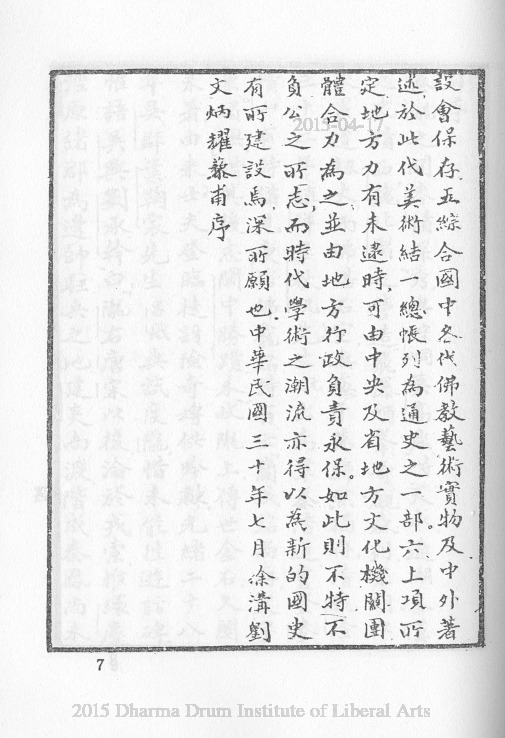 設會保存五綜合國中各代佛教藝術實物及中外著
述於此代美術結一總帳列為通史之一部。六上項所
定地方力有未逮時可由中央及省地方文化機關團
體合力為之並由地方行政負責永保。如此則不特不
負公之所志而時代學術之潮流亦得以為新的國史
有所建設焉深所願也中華民國三十年七月徐溝劉
文炳耀藜甫序
7
2013-04-17
2015 Dharma Drum Institute of Liberal Arts